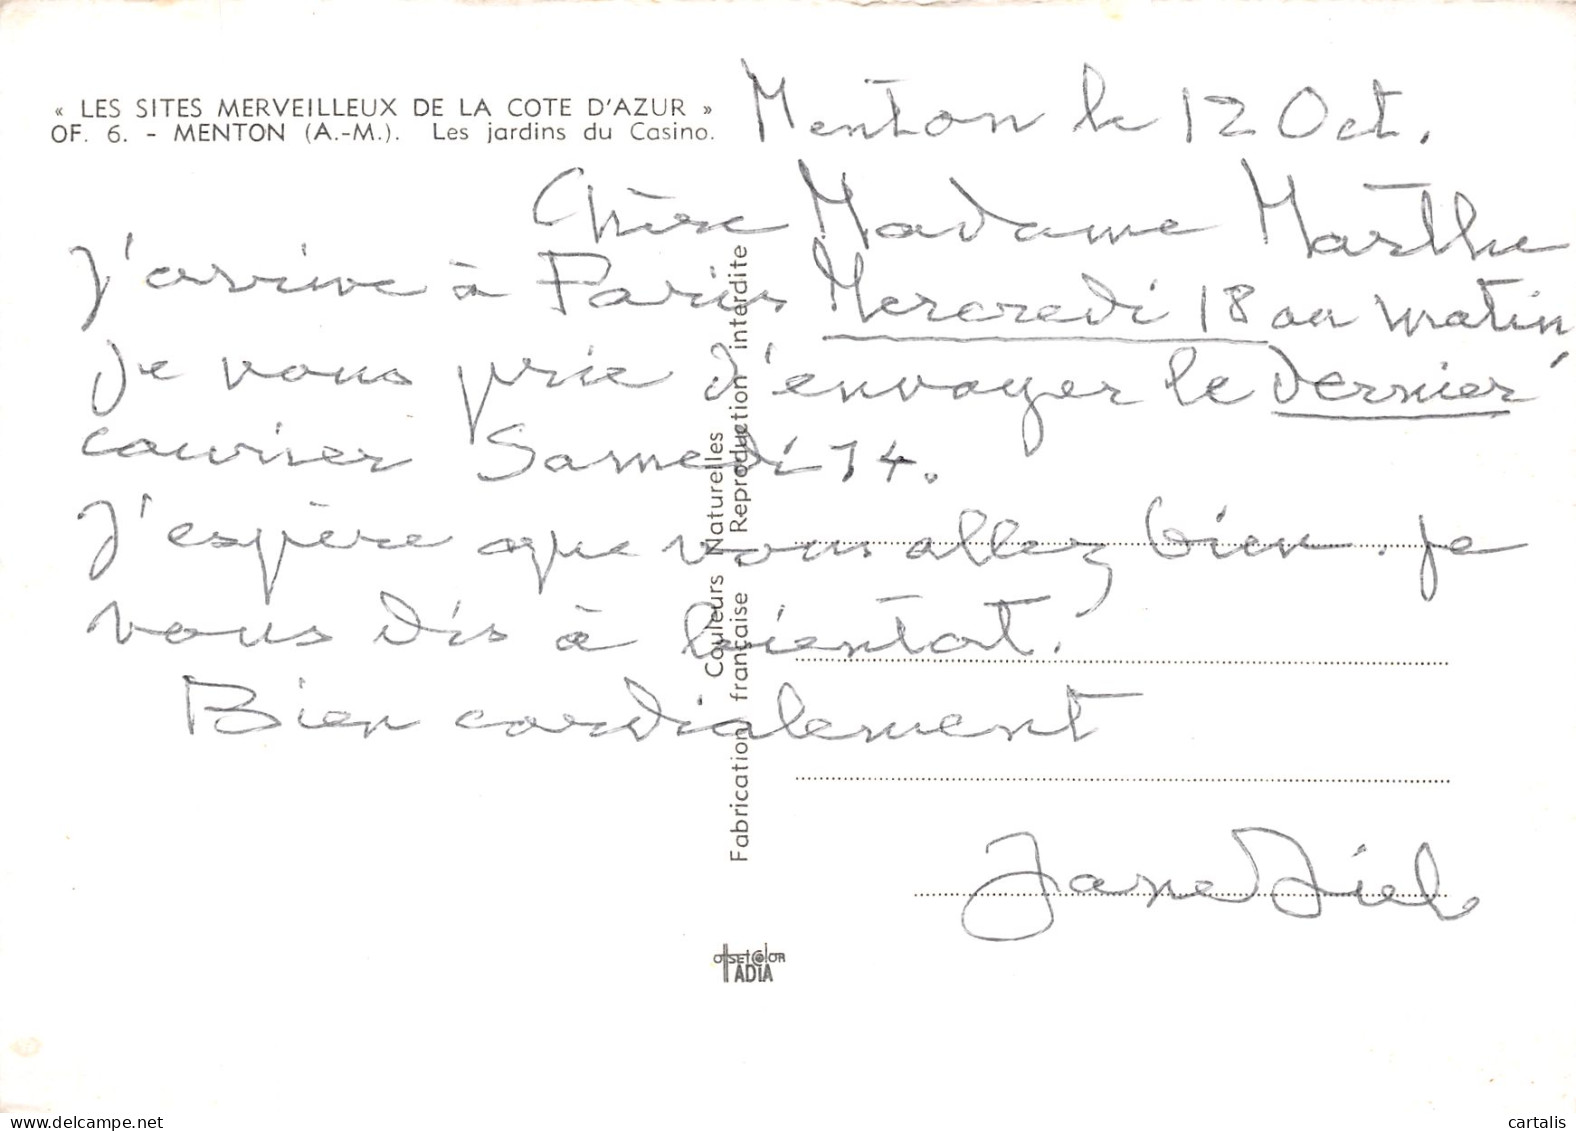 « LES SITES MERVEILLEUX DE LA COTE D'AZUR »
OF. 6. - MENTON (A.-M.). Les jardins du Casino.
Menton le 12 Oct.
Chère Madame Marthe
J'arrive à Paris Mercredi 18 au matin
Je vous prie d'envoyer le dernier
courrier Samedi 14.
J'espère que vous allez bien. Je
vous dis à bientot.
Bien cordialement
Jane
Couleurs Naturelles
Fabrication française - Reproduction interdite
OffsetColor
ADIA
delcampe.net
cartalis